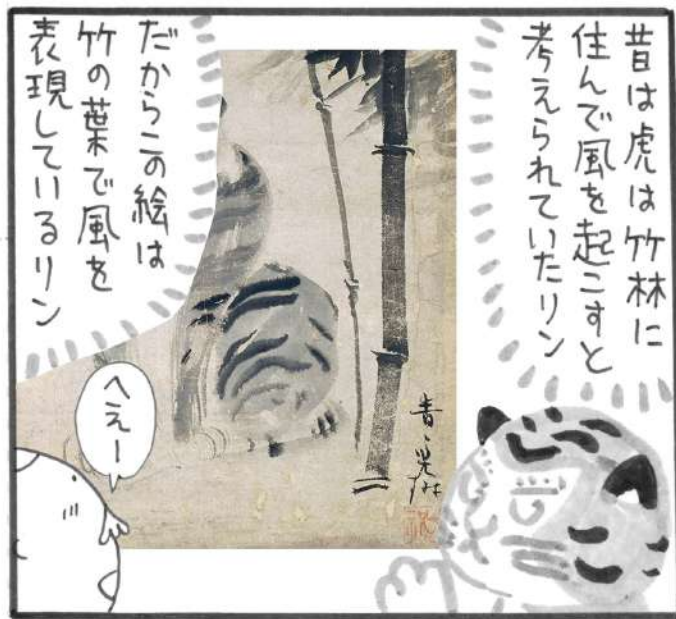 昔は虎は竹林に
住んで風を起こすと
考えられていたリン
だからこの絵は
竹の葉で風を
表現しているリン
へぇー
青々光琳